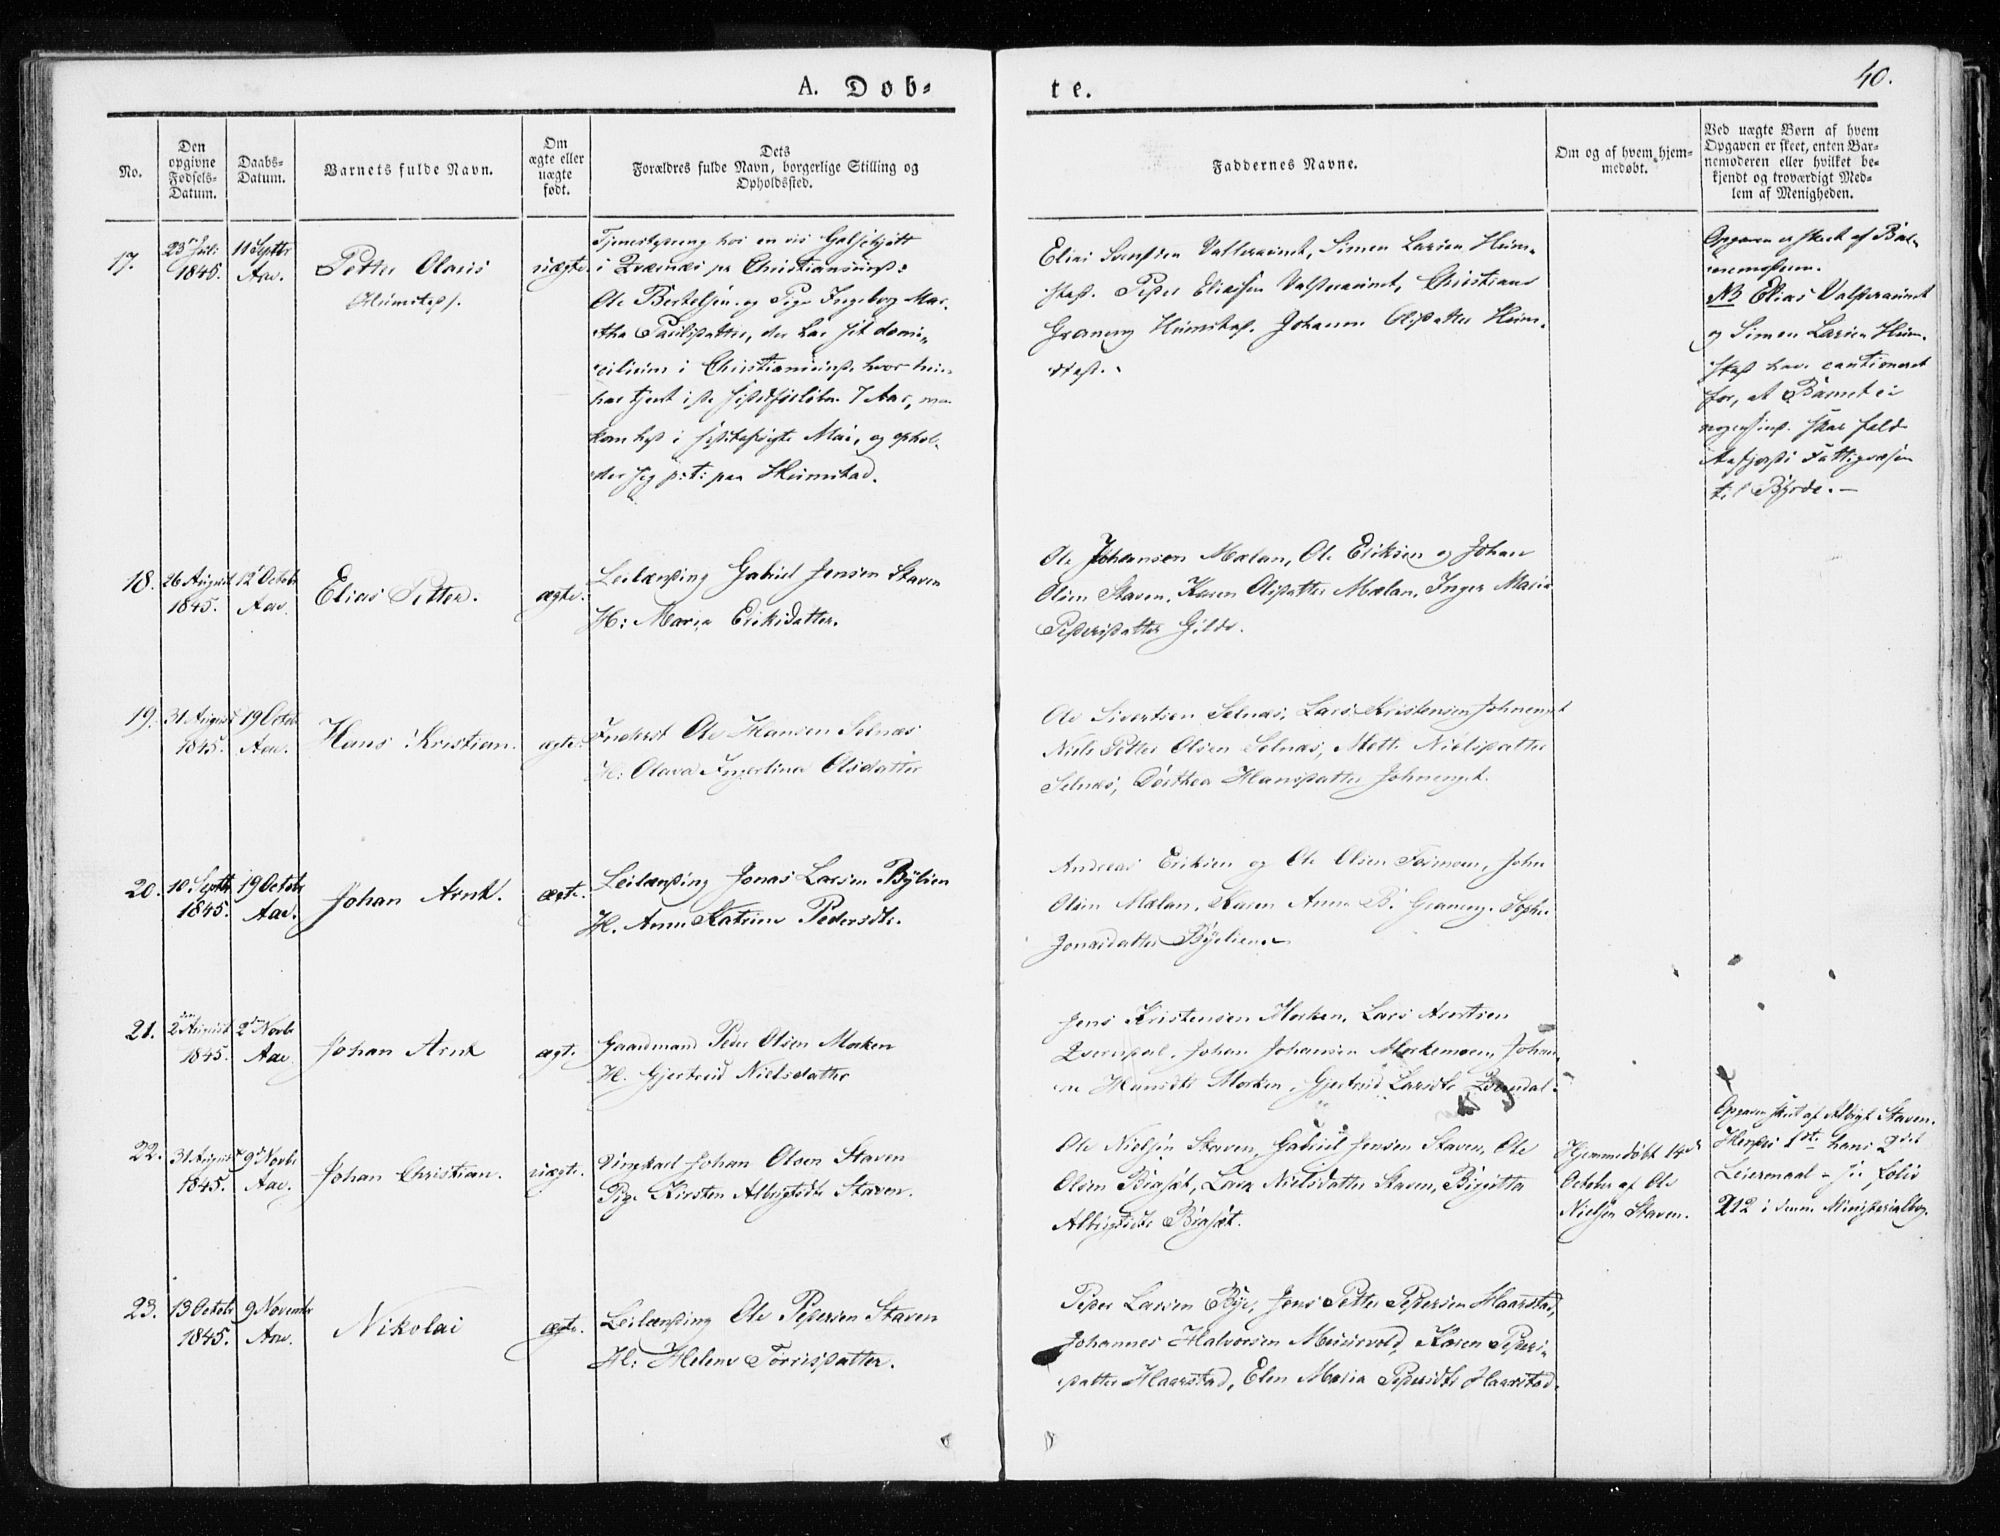 40.
A. Døb-
te.
No.
Den
opgivne
Fødsels-
Datum.
Daabs-
Datum.
Barnets fulde Navn.
Om
ægte eller
uægte
født.
Dets
Forældres fulde Navn, borgerlige Stilling og
Opholdssted.
Faddernes Navne.
Om og af hvem hjem-
medøbt.
Ved uægte Børn af hvem
Opgaven er skeet, enten Bar-
nemoderen eller hvilket be-
kjendt og troværdigt Med-
lem af Menigheden.
17.
1845.
11 Septbr
Aae.
Petter Olaus
uægte
Tjenestedreng hos en vis
i pr Christianssund:
Ole Bertelsen og Pige Ingeborg Mar-
tha Paulsdatter, der har sit domi-
cilium i Christianssund, hvor hun
har tjent i de sidstforløbne 7 Aar,
kom hid i Mai, og ophol-
der sig p: t: paa Hÿmstad.
Elias Valseraunet, Simen Larsen Hÿm-
stad. Peder Eliassen Valseraunet, Christiane
Graneng Hÿmstad. Johanna Olsdatter Hÿm-
stad.
Opgaven er skeet af Bar-
nemoderen.
NB Elias Valseraunet
og Simen Larsen Hÿm-
stad have cautioneret
for, at Barnet ei
nogensinde skal falde
Aafjords Fattigvæsen
til Byrde. —
18.
26 August
1845.
12 Octobr
Aae.
Elias Petter.
ægte.
Leilænding Gabriel Jensen Staven
H: Maria Eriksdatter.
Ole Johansen Mælan, Ole Eriksen og Johan
Olsen Staven, Karen Olsdatter Mælan, Inger Maria
Pedersdatter Gilde.
19.
31 August
1845.
19 Octobr
Aae.
Hans Kristian.
ægte.
Inderst Ole Hansen Selnæs
H: Olava Ingerline Olsdatter
Ole Sivertsen Selnæs, Lars Kristensen Johnenget
Niels Petter Olsen Selnæs, Mette Nielsdatter
Selnæs, Dorthea Hansdatter Johnenget.
20.
10 Septbr
1845.
19 Octobr
Aae.
Johan Arnt.
ægte.
Leilænding Jonas Larsen Bÿlien
H. Anne Katrine Pedersdtr.
Andreas Eriksen og Ole Olsen John
Olsen Mælan, Karen Anna B. Graneng. Sophie
Jonasdatter Bÿelien.
21.
2 August
1845.
2 Novbr
Aae.
Johan Arnt
ægte.
Gaardmand Peder Olsen Morken
H. Gjertrud Nielsdatter
Jens Kristensen Morken, Lars
Qverndal, Johan Johansen Morkemoen, Johan-
ne Hansdtr Morken, Gjertrud Larsdtr Qverndal.
22.
31 August
1845.
9 Novbr
Aae.
Johan Christian.
uægte.
Ungkarl Johan Olsen Staven
Pige Kirsten Albrigtsdtr Staven.
Ole Nielsen Staven, Gabriel Jensen Staven, Ole
Olsen Biasæt, Lava Nielsdatter Staven, Birgitta
Albrigtsdtr Biasæt.
Hjemmedøbt 14d
October af Ole
Nielsen Staven.
Opgaven skeet af Albrigt Staven.
1ste hans 2det
Leiermaal –
212 i denne Ministerialbog.
23.
13 Octobr
1845.
9 Novembr
Aae.
Nikolai
ægte.
Leilænding Ole Pedersen Staven
H: Helene Torrisdatter.
Peder Larsen Bÿe, Jens Petter Pedersen Haarstad,
Johannes Halvorsen Karen Peders-
datter Haarstad, Elen Maria Pedersdtr Haarstad.